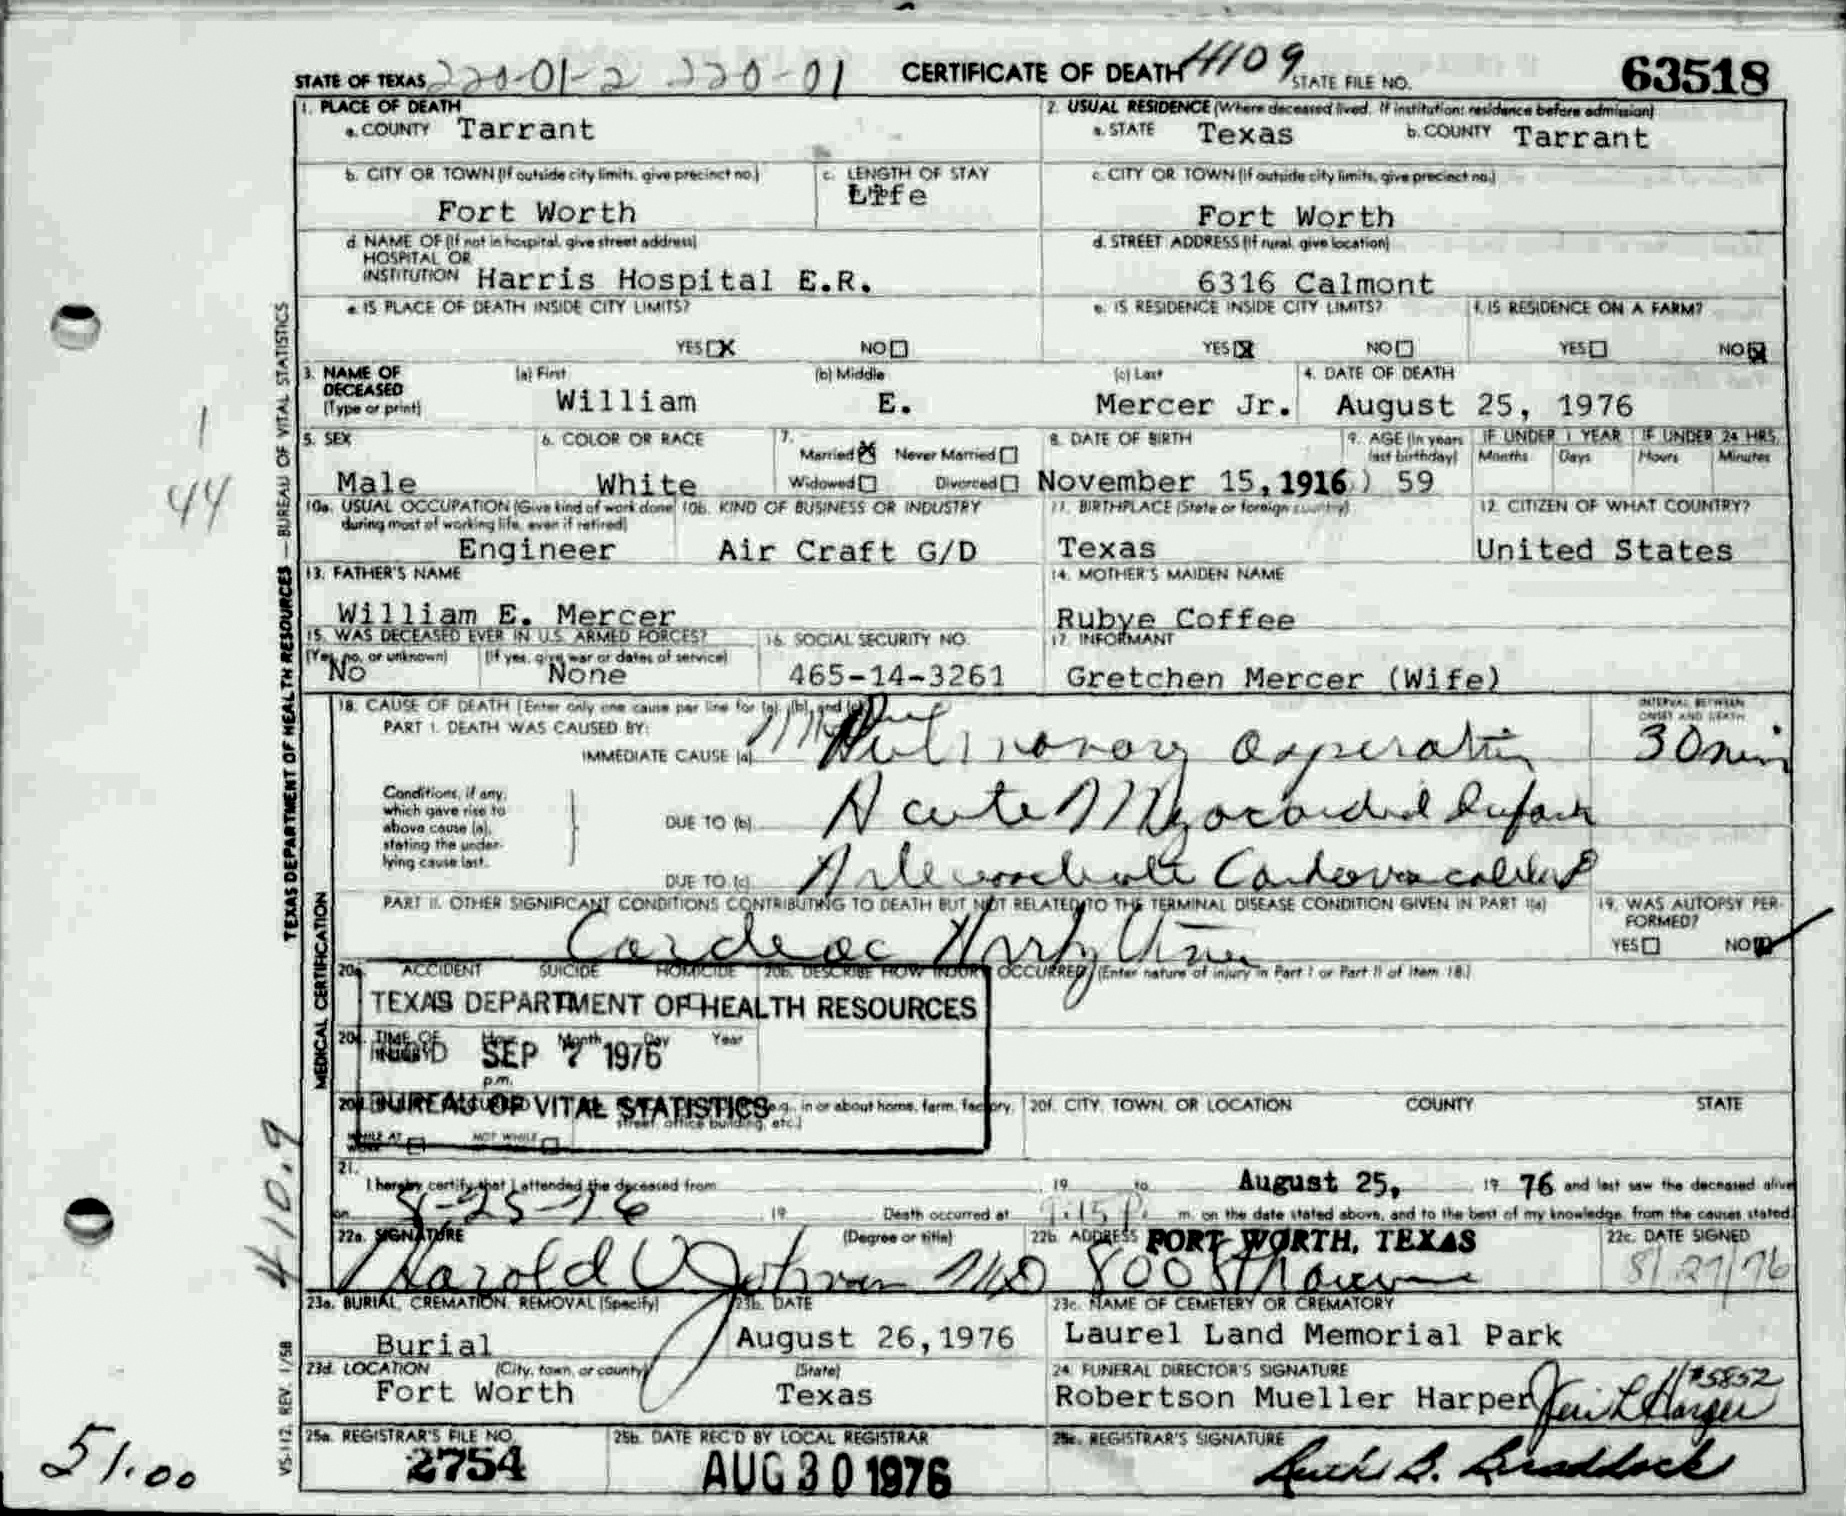 STATE OF TEXAS 220-01-2 220-01 CERTIFICATE OF DEATH 4109 STATE FILE NO. 63518
1. PLACE OF DEATH
a. COUNTY Tarrant
2. USUAL RESIDENCE (Where deceased lived. If institution: residence before admission)
a. STATE Texas b. COUNTY Tarrant
b. CITY OR TOWN (If outside city limits, give precinct no.)
Fort Worth
c. LENGTH OF STAY
Life
c. CITY OR TOWN (If outside city limits, give precinct no.)
Fort Worth
d. NAME OF (If not in hospital, give street address)
HOSPITAL OR
INSTITUTION Harris Hospital E.R.
d. STREET ADDRESS (If rural, give location)
6316 Calmont
e. IS PLACE OF DEATH INSIDE CITY LIMITS?
YES X NO
e. IS RESIDENCE INSIDE CITY LIMITS?
YES X NO
f. IS RESIDENCE ON A FARM?
YES NO X
3. NAME OF
DECEASED
(Type or print)
(a) First
William
(b) Middle
E.
(c) Last
Mercer Jr.
4. DATE OF DEATH
August 25, 1976
5. SEX
Male
6. COLOR OR RACE
White
7.
Married X Never Married
Widowed Divorced
8. DATE OF BIRTH
November 15, 1916
9. AGE (In years
last birthday)
59
IF UNDER 1 YEAR
Months Days
IF UNDER 24 HRS.
Hours Minutes
10a. USUAL OCCUPATION (Give kind of work done
during most of working life, even if retired)
Engineer
10b. KIND OF BUSINESS OR INDUSTRY
Air Craft G/D
11. BIRTHPLACE (State or foreign country)
Texas
12. CITIZEN OF WHAT COUNTRY?
United States
13. FATHER'S NAME
William E. Mercer
14. MOTHER'S MAIDEN NAME
Rubye Coffee
15. WAS DECEASED EVER IN U.S. ARMED FORCES?
(Yes, no, or unknown) (If yes, give war or dates of service)
No None
16. SOCIAL SECURITY NO.
465-14-3261
17. INFORMANT
Gretchen Mercer (Wife)
18. CAUSE OF DEATH (Enter only one cause per line for (a), (b), and (c))
PART I. DEATH WAS CAUSED BY:
IMMEDIATE CAUSE (a) Pulmonary aspiration
INTERVAL BETWEEN
ONSET AND DEATH
30 min
Conditions, if any,
which gave rise to
above cause (a),
stating the under-
lying cause last.
DUE TO (b) Acute Myocardial Infarct
DUE TO (c)
PART II. OTHER SIGNIFICANT CONDITIONS CONTRIBUTING TO DEATH BUT NOT RELATED TO THE TERMINAL DISEASE CONDITION GIVEN IN PART I(a)
Cardiac
19. WAS AUTOPSY PER-
FORMED?
YES NO
20a. ACCIDENT SUICIDE HOMICIDE 20b. DESCRIBE HOW INJURY OCCURRED (Enter nature of injury in Part I or Part II of item 18.)
TEXAS DEPARTMENT OF HEALTH RESOURCES
TIME OF Hour Month Day Year
SEP 7 1976
p.m.
BUREAU OF VITAL STATISTICS
in or about home, farm, factory,
street, office building, etc.)
20f. CITY, TOWN, OR LOCATION COUNTY STATE
WHILE AT NOT WHILE
WORK
21.
I hereby certify that I attended the deceased from 19 to August 25, 19 76 and last saw the deceased alive
on 8-25-76 19 Death occurred at m. on the date stated above, and to the best of my knowledge, from the causes stated.
22a. SIGNATURE (Degree or title)
Harold V Johnson MD
22b. ADDRESS FORT WORTH, TEXAS
22c. DATE SIGNED
8/27/76
23a. BURIAL, CREMATION, REMOVAL (Specify)
Burial
23b. DATE
August 26, 1976
23c. NAME OF CEMETERY OR CREMATORY
Laurel Land Memorial Park
23d. LOCATION (City, town, or county) (State)
Fort Worth Texas
24. FUNERAL DIRECTOR'S SIGNATURE
Robertson Mueller Harper #5852
25a. REGISTRAR'S FILE NO.
2754
25b. DATE REC'D BY LOCAL REGISTRAR
AUG 30 1976
25c. REGISTRAR'S SIGNATURE
B. Braddock
TEXAS DEPARTMENT OF HEALTH RESOURCES — BUREAU OF VITAL STATISTICS
MEDICAL CERTIFICATION
VS-112, REV. 1/58
1
44
410.9
51.00